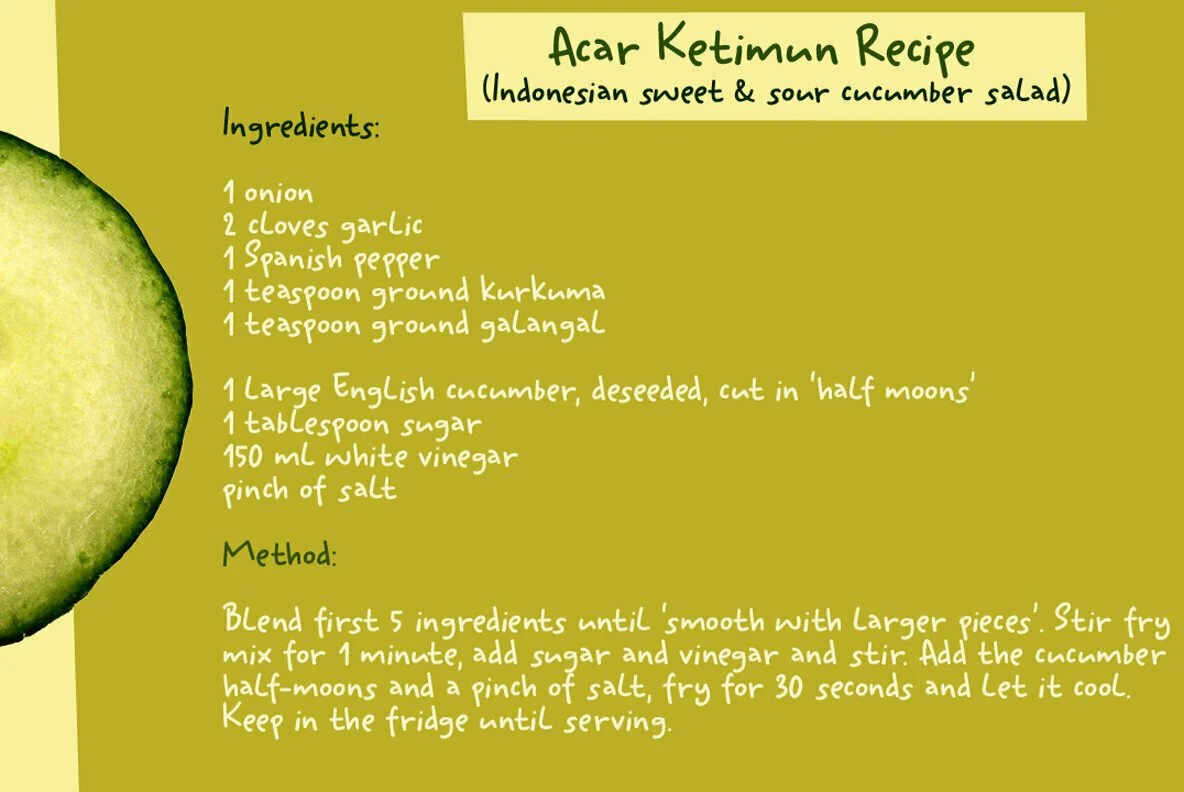 Acar Ketimun Recipe
(Indonesian sweet & sour cucumber salad)
Ingredients:
1 onion
2 cloves garlic
1 Spanish pepper
1 teaspoon ground kurkuma
1 teaspoon ground galangal
1 Large English cucumber, deseeded, cut in 'half moons'
1 tablespoon sugar
150 ml white vinegar
pinch of salt
Method:
Blend first 5 ingredients until 'smooth with larger pieces'. Stir fry
mix for 1 minute, add sugar and vinegar and stir. Add the cucumber
half-moons and a pinch of salt, fry for 30 seconds and let it cool.
Keep in the fridge until serving.